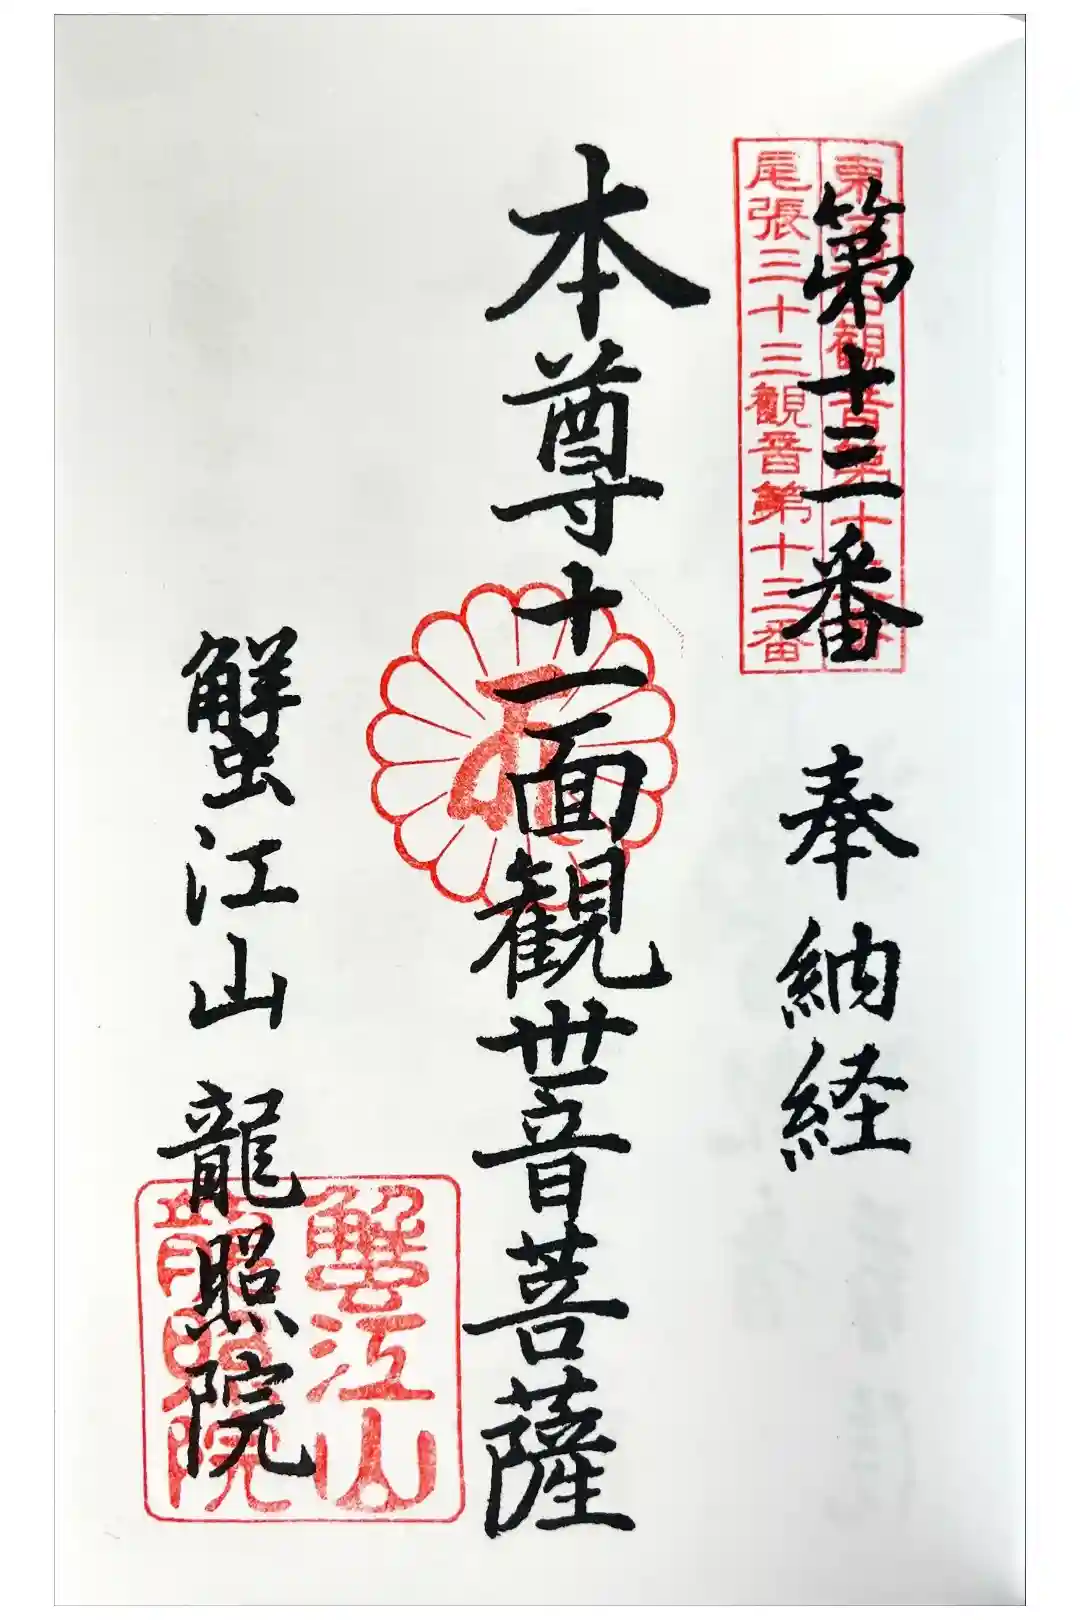 第十三番 奉納経
東海百観音第十三番
尾張三十三観音第十三番
本尊十一面観世音菩薩
蟹江山 龍照院
蟹江山
龍照院